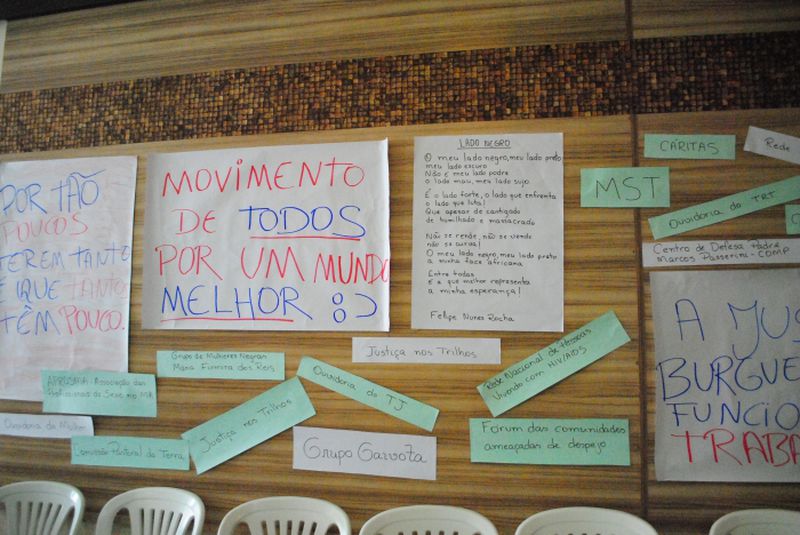 POR TÃO
POUCOS
TEREM TANTO
É QUE TANTOS
TÊM POUCO.
MOVIMENTO
DE TODOS
POR UM MUNDO
MELHOR :)
LADO NEGRO
O meu lado negro, meu lado preto
meu lado escuro
Não é meu lado podre
o lado mau, meu lado sujo
É o lado forte, o lado que enfrenta
o lado que luta!
Que apesar de castigado
de humilhado e massacrado
Não se rende, não se vende
não se curva!
O meu lado negro, meu lado preto
a minha face africana
Entre todas
É a que melhor representa
a minha esperança!
Felipe Nunes Rocha
CÁRITAS
Rede
MST
Ouvidoria do TRT
Centro de Defesa Padre
Marcos Passerini - COMP
A JUS
BURGUE
FUNCIO
TRABA
Justiça nos Trilhos
Grupo de Mulheres Negras
Maria Firmina dos Reis
Ouvidoria do TJ
Rede Nacional de Pessoas
Vivendo com HIV/AIDS
APROSMA - Associação das
Profissionais do Sexo no MA
Ouvidoria da Mulher
Comissão Pastoral da Terra
Justiça nos Trilhos
Grupo Gavota
Forum das comunidades
ameaçadas de despejo